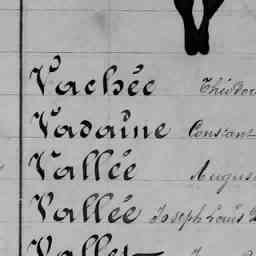 Vachée Théodor
Vadaine Constant
Vallée Augus
Vallée Joseph Louis
Vallet